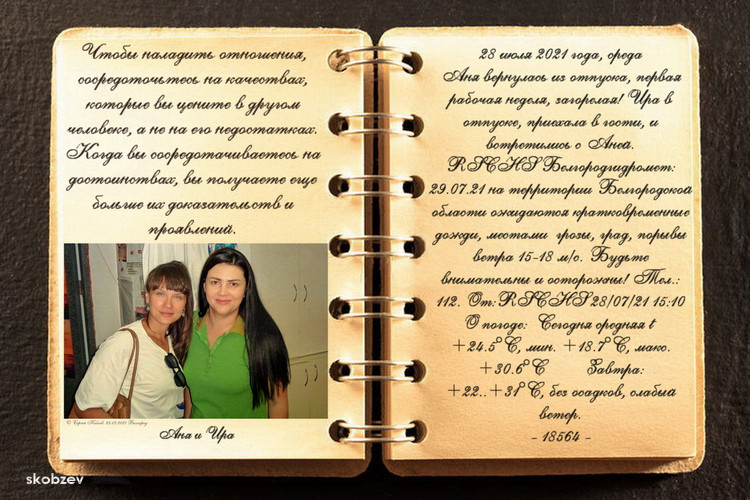 Чтобы наладить отношения,
сосредоточьтесь на качествах,
которые вы цените в другом
человеке, а не на его недостатках.
Когда вы сосредотачиваетесь на
достоинствах, вы получаете еще
больше их доказательств и
проявлений.
Аня и Ира
28 июля 2021 года, среда
Аня вернулась из отпуска, первая
рабочая неделя, загорелая! Ира в
отпуске, приехала в гости, и
встретились с Аней.
RSCHS Белгородгидромет:
29.07.21 на территории Белгородской
области ожидаются кратковременные
дожди, местами грозы, град, порывы
ветра 15-18 м/с. Будьте
внимательны и осторожны! Тел.:
112. От: RSCHS 28/07/21 15:10
О погоде: Сегодня средняя t
+24.5°C, мин. +18.7°C, макс.
+30.6°C Завтра:
+22..+31°C, без осадков, слабый
ветер.
- 18564 -
skobzev